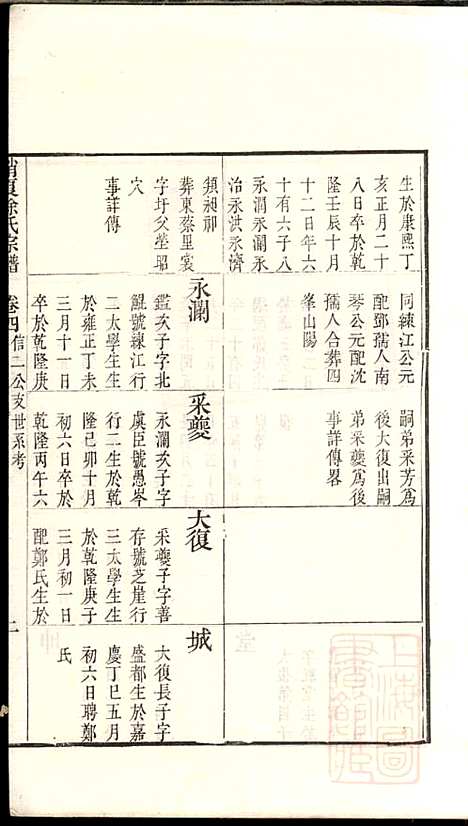 生於康熙丁
亥正月二十
八日卒於乾
隆壬辰十月
十二日年六
十有六子八
永潤永瀾永
治永洪永濟
須昶祁
葬東蔡里裳
字圩父塋昭
穴
事詳傳
同練江公元
配鄧孺人南
琴公元配沈
孺人合葬四
峯山陽
永瀾
鑑次子字北
鯤號練江行
二太學生生
於雍正丁未
三月十一日
卒於乾隆庚
嗣弟采芳爲
後大復出嗣
弟采夔爲後
事詳傳畧
采夔
永瀾次子字
虞臣號愚岑
行二生於乾
隆己卯十月
初六日卒於
乾隆丙午六
大復
采夔子字善
存號芝崖行
三太學生生
於乾隆庚子
三月初一日
配鄭氏生於
城
大復長子字
盛都生於嘉
慶丁巳五月
初六日聘鄭
氏
消夏徐氏宗譜
卷四 信二公支世系考
二
上海圖書館藏